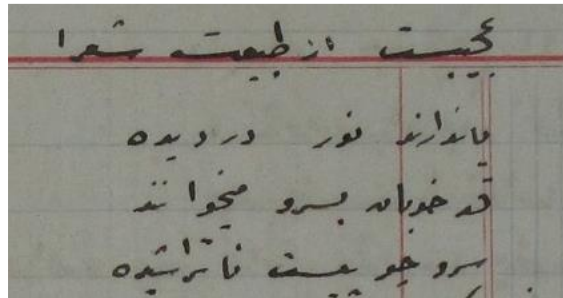 عجیبست از طبیعت شعرا
یا ندارند نور در دیده
قد خوبان بسرو میخوانند
سرو چوبیست ناتراشیده